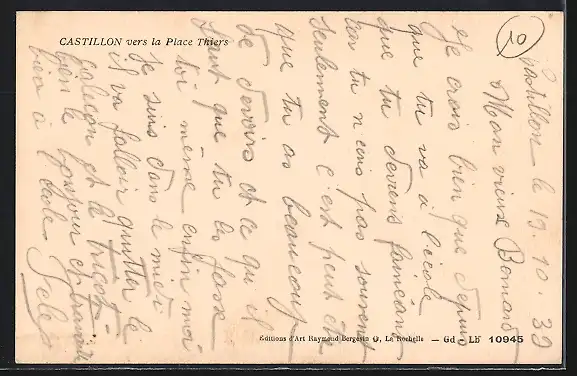 CASTILLON vers la Place Thiers
2
Castillon le 19.10.39
Mon vieux Bernard
Je crois bien que depuis
que tu vas à l'école
que tu deviens fainéant
car tu n'ecris pas souvent
seulement c'est peut etre
que tu as beaucoup
de devoirs et ce qu'il
faut que tu les fasse
toi même enfin moi
je suis dans le midi
il va falloir quitter le
caleçon et le tricot
bien le bonjour et
bien à toute
Editions d'Art Raymond Bergevin, La Rochelle — Gd - Lb 10945